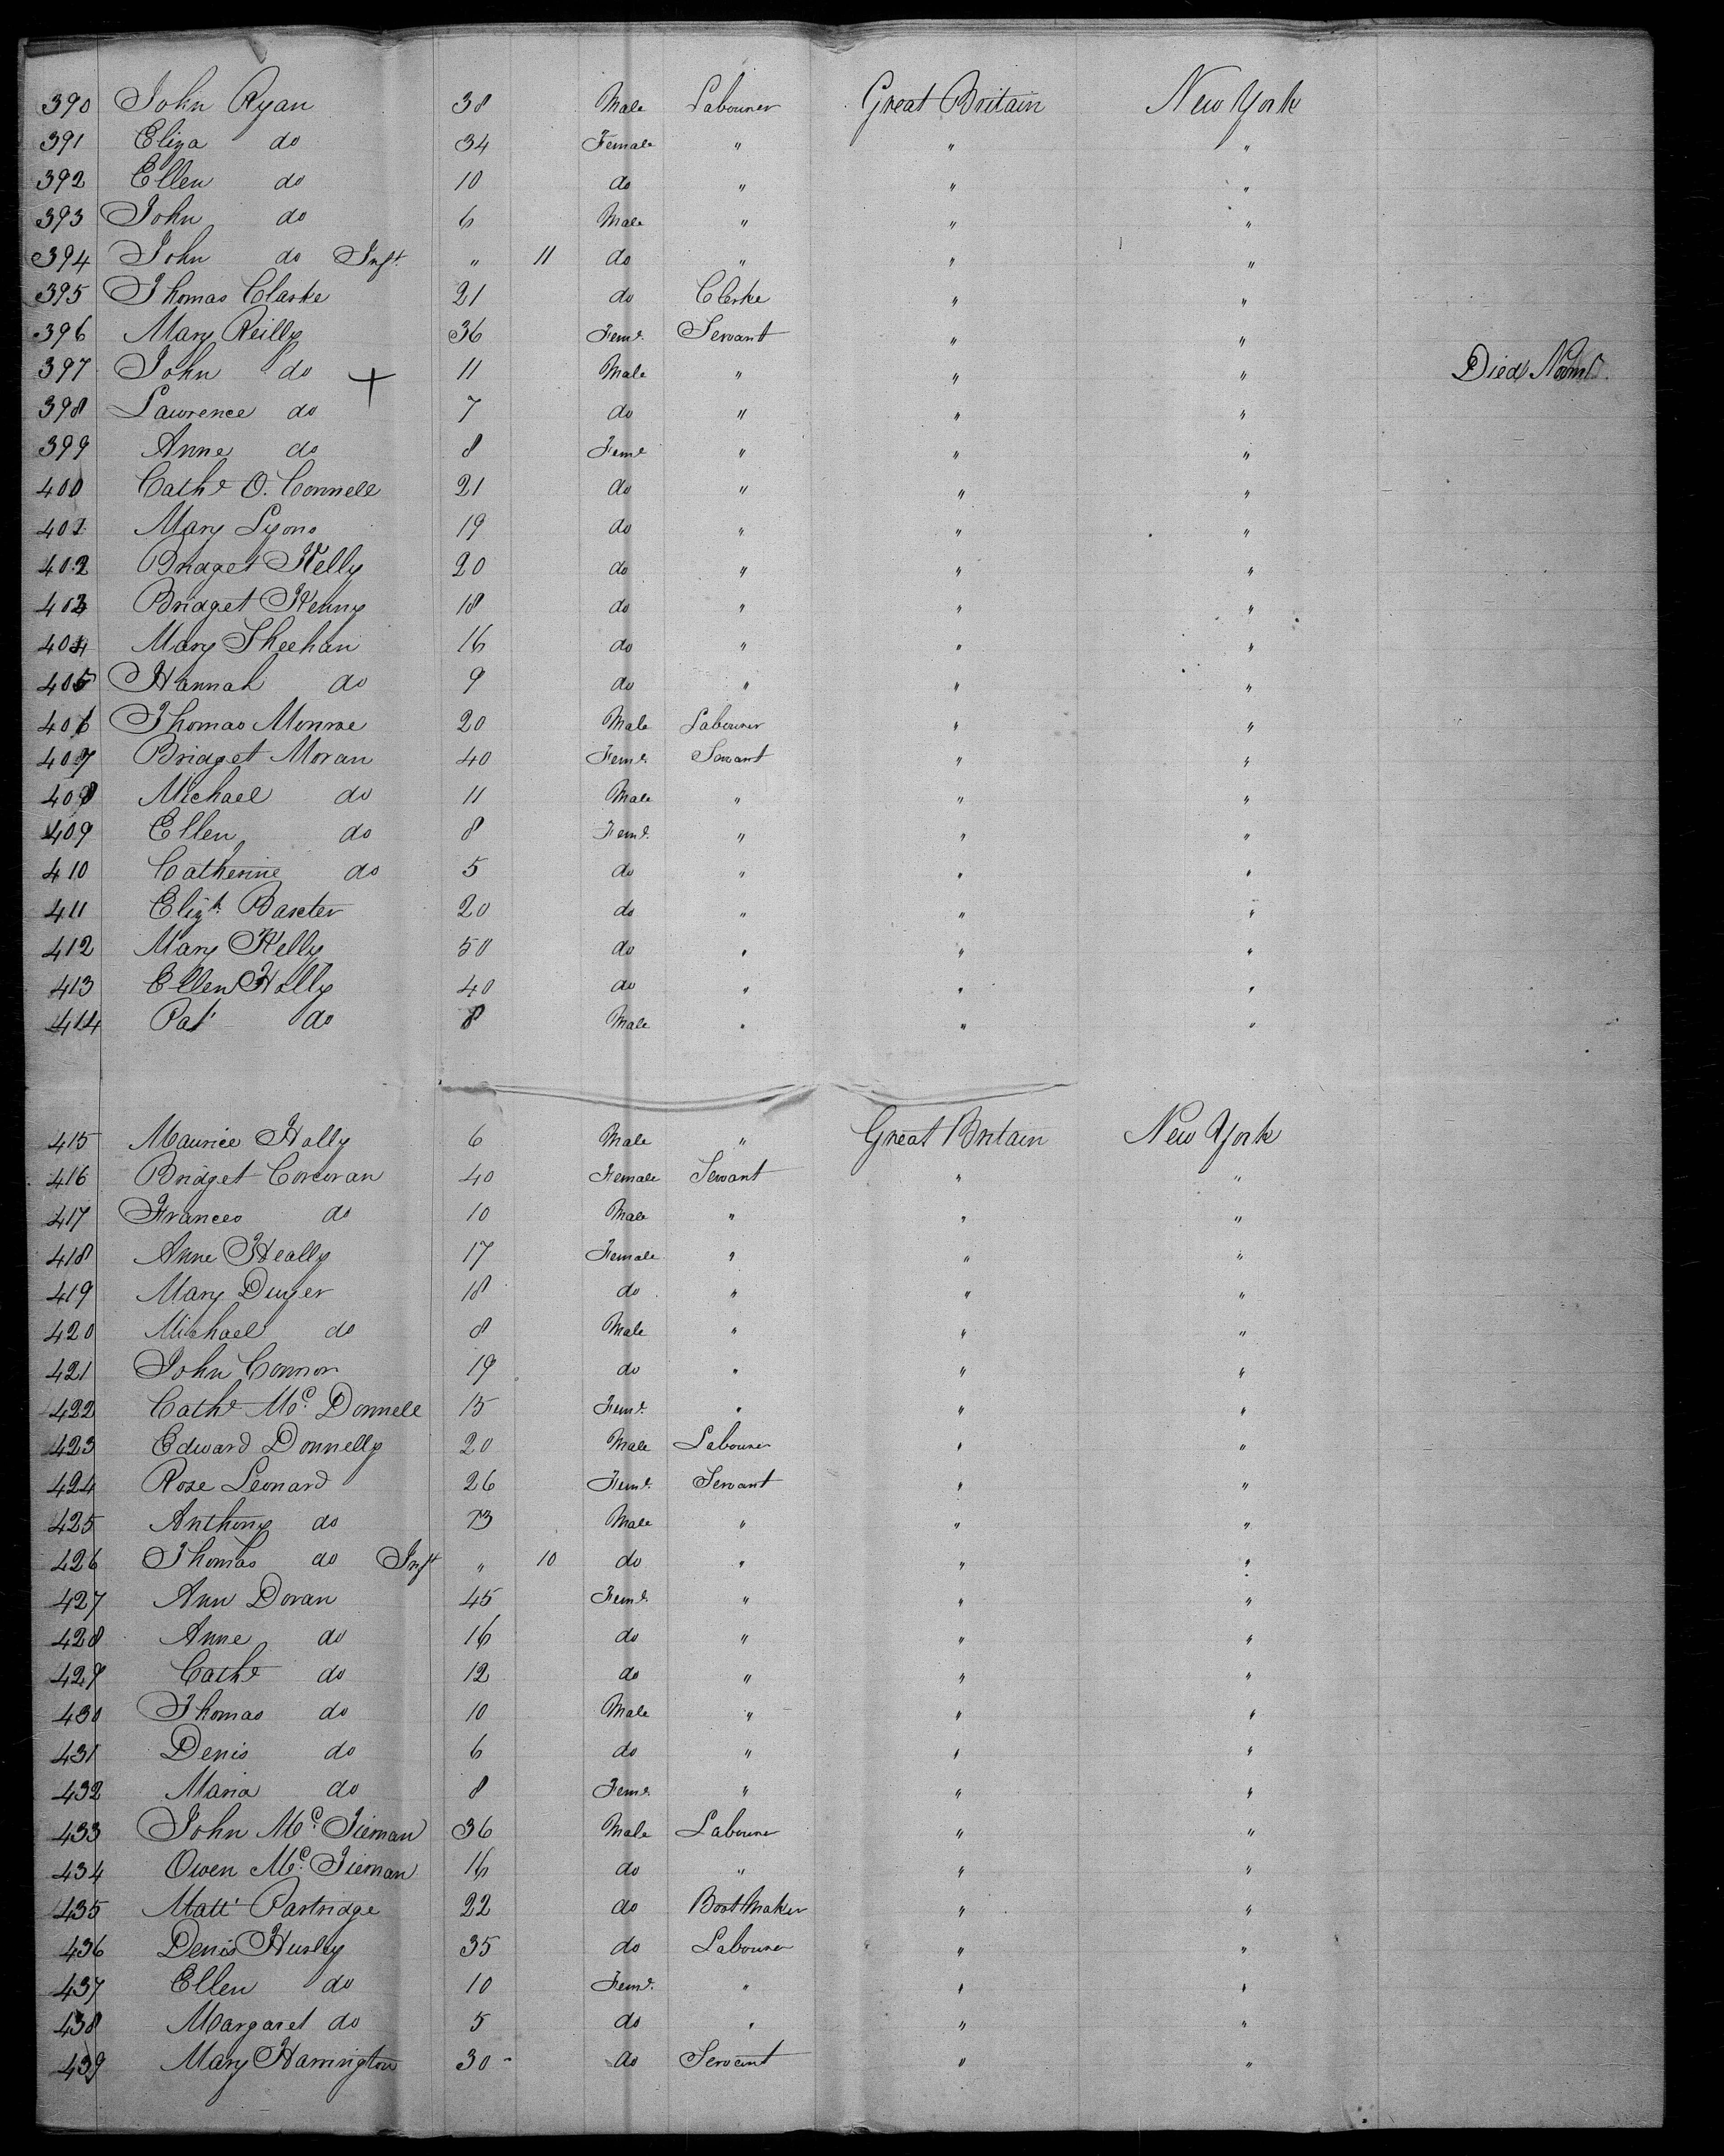 390 John Ryan 38 Male Labourer Great Britain New York
391 Eliza do 34 Female " " "
392 Ellen do 10 do " " "
393 John do 6 Male " " "
394 John do Inft " 11 do " " "
395 Thomas Clarke 21 do Clerke " "
396 Mary Reilly 36 Feme Servant " "
397 John do + 11 Male " " " Died
398 Lawrence do 7 do " " "
399 Anne do 8 Feme " " "
400 Cathe O. Connell 21 do " " "
401 Mary Lyons 19 do " " "
402 Bridget Kelly 20 do " " "
403 Bridget Kenny 18 do " " "
404 Mary Sheehan 16 do " " "
405 Hannah do 9 do " " "
406 Thomas Monroe 20 Male Labourer " "
407 Bridget Moran 40 Feme Servant " "
408 Michael do 11 Male " " "
409 Ellen do 8 Feme " " "
410 Catherine do 5 do " " "
411 Elizh Baxter 20 do " " "
412 Mary Kelly 50 do " " "
413 Ellen Holly 40 do " " "
414 Pat do 8 Male " " "
415 Maurice Holly 6 Male " Great Britain New York
416 Bridget Corcoran 40 Female Servant " "
417 Frances do 10 Male " " "
418 Anne Heally 17 Female " " "
419 Mary Dwyer 18 do " " "
420 Michael do 8 Male " " "
421 John Connor 19 do " " "
422 Cathe Mc Donnell 15 Feme " " "
423 Edward Donnelly 20 Male Labourer " "
424 Rose Leonard 26 Feme Servant " "
425 Anthony do Male " " "
426 Thomas do Inft " 10 do " " "
427 Ann Doran 45 Feme " " "
428 Anne do 16 do " " "
429 Cathe do 12 do " " "
430 Thomas do 10 Male " " "
431 Denis do 6 do " " "
432 Maria do 8 Feme " " "
433 John Mc Tiernan 36 Male Labourer " "
434 Owen Mc Tiernan 16 do " " "
435 Matt Partridge 22 do Boot Maker " "
436 Denis Hurley 35 do Labourer " "
437 Ellen do 10 Feme " " "
438 Margaret do 5 do " " "
439 Mary Harrington 30 do Servant " "